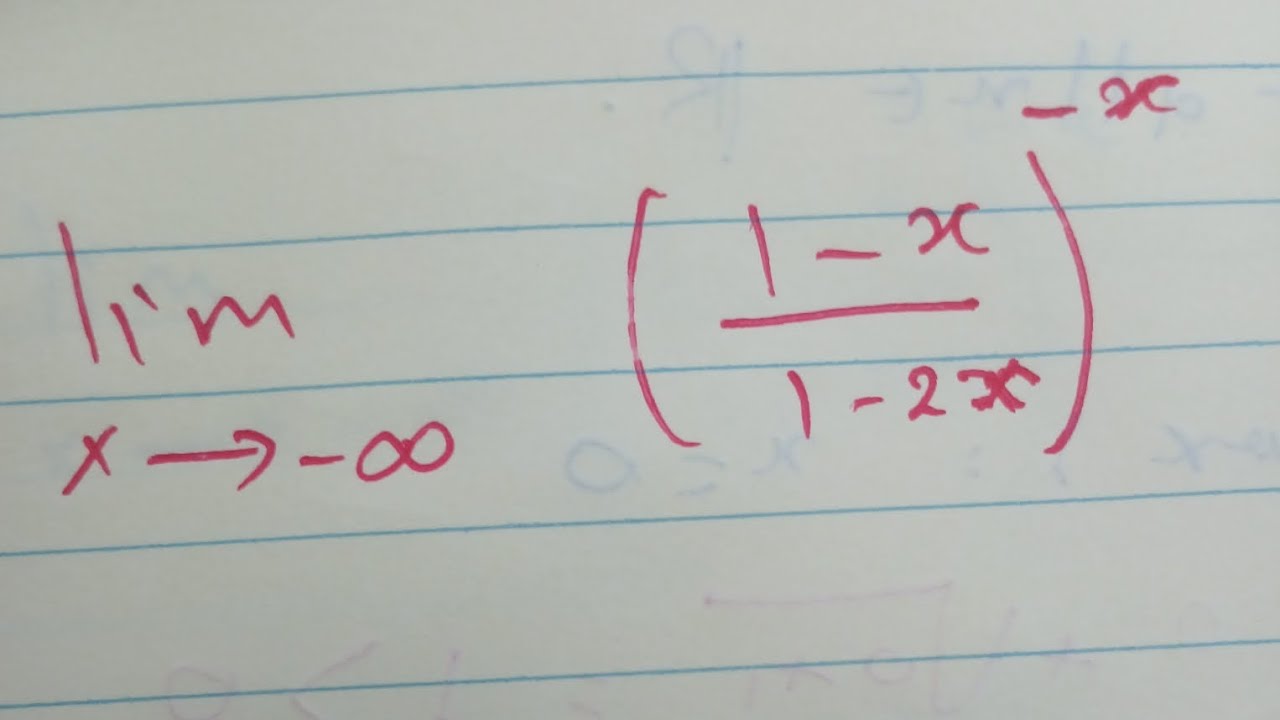 lim x→-∞ ((1-x)/(1-2x))^(-x)